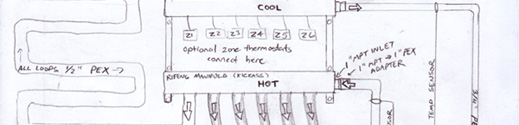 COOL
Z1 Z2 Z3 Z4 Z5 Z6
optional zone thermostats
connect here
ALL LOOPS 1/2" PEX →
PIPING MANIFOLD (PACKAGE)
HOT
1" MPT INLET
1" MPT → 1" PEX
ADAPTER
TEMP SENSOR
3/4"